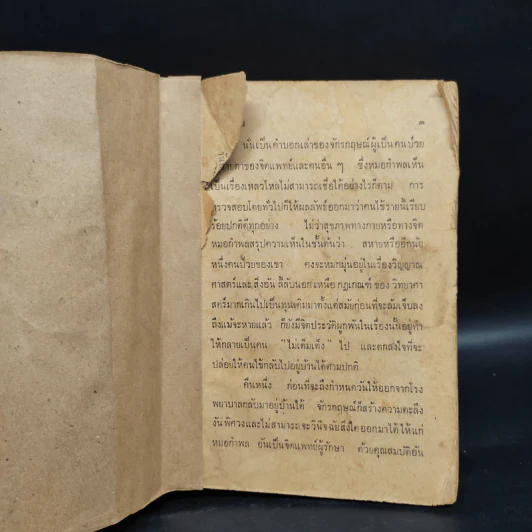 ๓
นั่นเป็นคำบอกเล่าของจักรกฤษณ์ผู้เป็นคนป่วย
ของจิตแพทย์และคนอื่น ๆ ซึ่งหมอกำพลเห็น
เป็นเรื่องเหลวไหลไม่สามารถเชื่อได้อย่างไรก็ตาม การ
ตรวจสอบโดยทั่วไปก็ให้ผลลัพธ์ออกมาว่าคนไข้รายนี้เรียบ
ร้อยปกติดีทุกอย่าง ไม่ว่าสุขภาพทางกายหรือทางจิต
หมอกำพลสรุปความเห็นในชั้นต้นว่า สหายหรืออีกนัย
หนึ่งคนป่วยของเขา คงจะหมกมุ่นอยู่ในเรื่องวิญญาณ
ศาสตร์และ สิ่งอัน ลี้ลับนอก เหนือ กฎเกณฑ์ ของ วิทยาศา
สตร์มากเกินไปเป็นทุนเดิมมาตั้งแต่สมัยก่อนที่จะล้มเจ็บลง
ถึงแม้จะหายแล้ว ก็ยังมีจิตประวัติผูกพันในเรื่องนั้นอยู่ทำ
ให้กลายเป็นคน "ไม่เต็มเต็ง" ไป และตกลงใจที่จะ
ปล่อยให้คนไข้กลับไปอยู่บ้านได้ตามปกติ
คืนหนึ่ง ก่อนที่จะถึงกำหนดวันให้ออกจากโรง
พยาบาลกลับมาอยู่บ้านได้ จักรกฤษณ์ก็สร้างความตะลึง
งันพิศวงและไม่สามารถจะวินิจฉัยสิ่งใดออกมาได้ ให้แก่
หมอกำพล อันเป็นจิตแพทย์ผู้รักษา ด้วยคุณสมบัติอัน